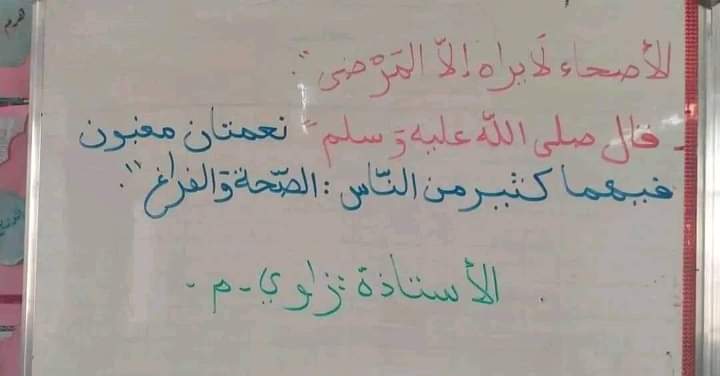 الأصحاء لَا يراه إلاّ المَرْضى".
- قال صلى الله عليه وَسلم " نعمتان مغبون
فيهما كثير من النّاس : الصّحة وَالفراغ ".
الأستاذة : زاوي - م -